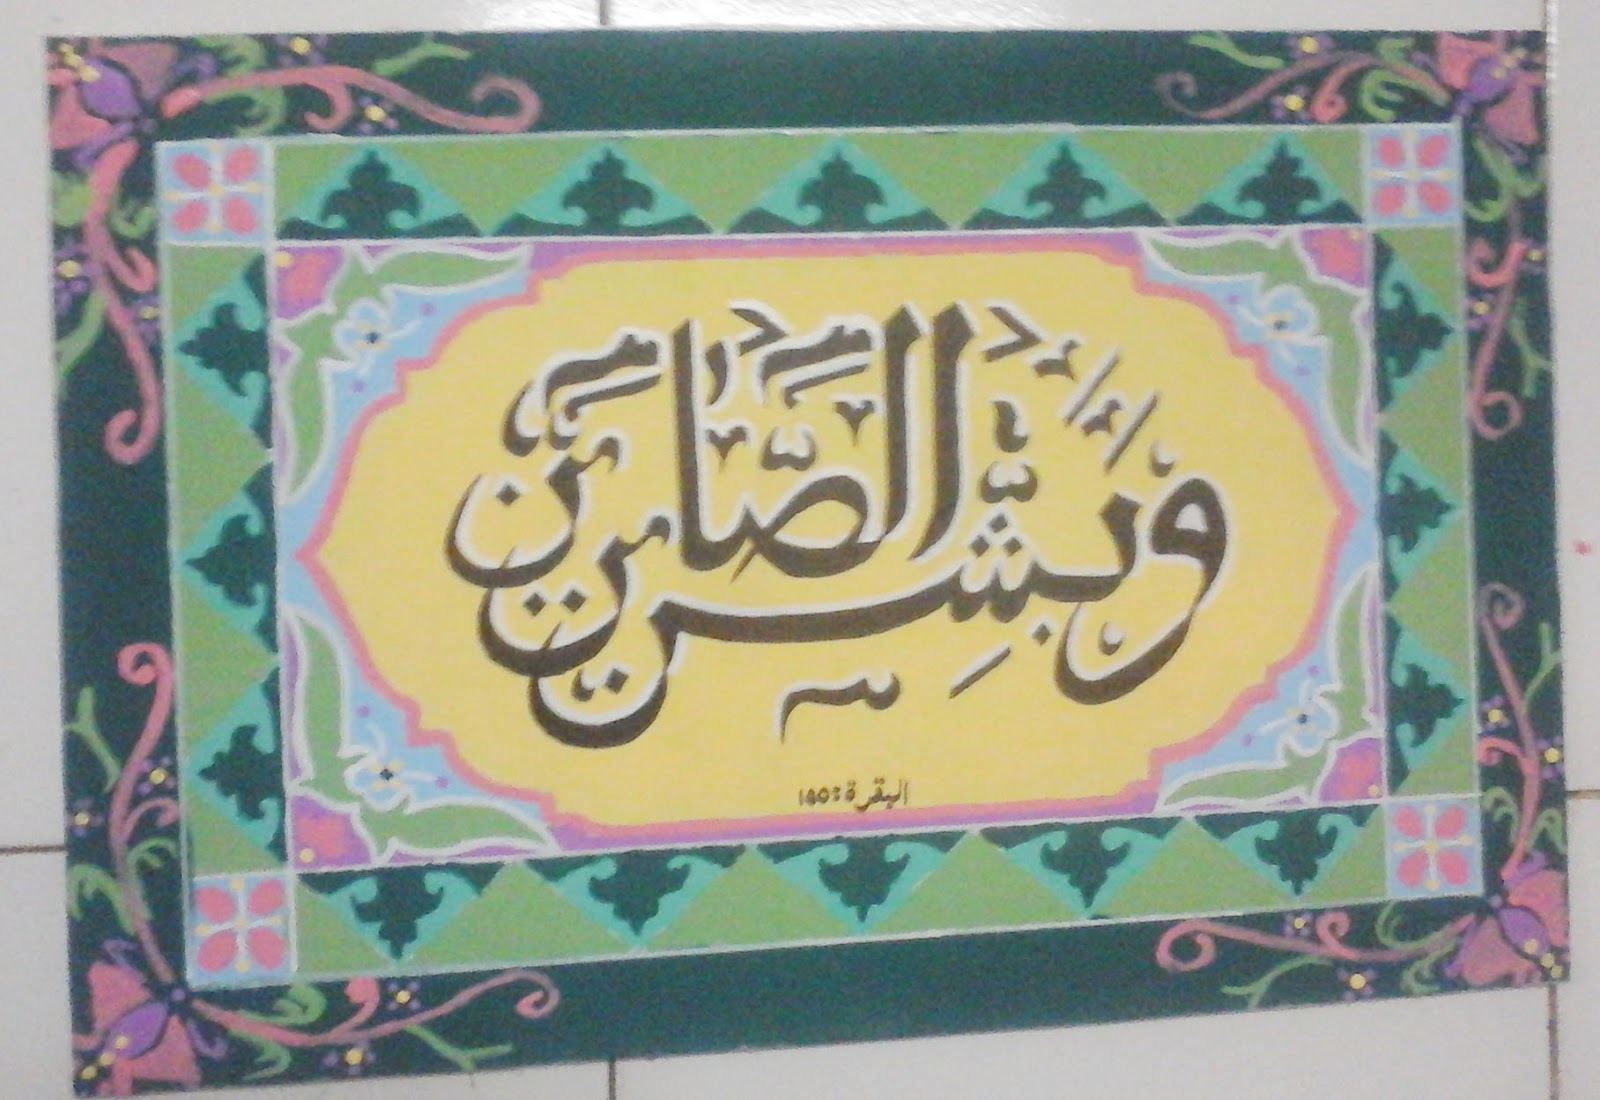 وَبَشِّرِ الصَّابِرِينَ
البقرة: ١٥٥